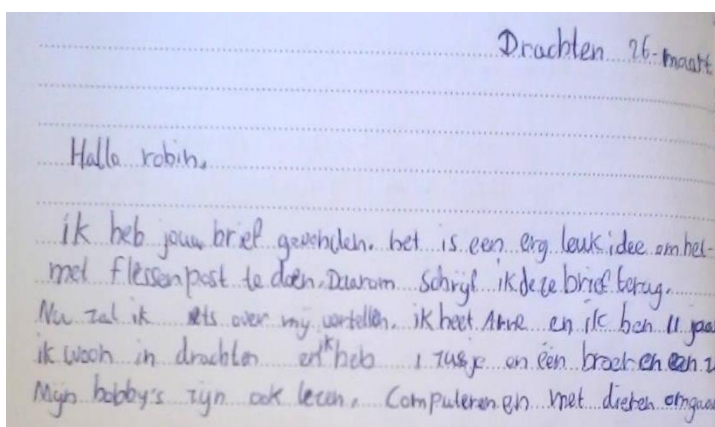 Drachten 26-maart
Hallo robin,
ik heb jouw brief gevonden. het is een erg leuk idee om het-
met flessenpost te doen. Daarom schrijf ik deze brief terug.
Nu zal ik iets over mij vertellen. ik heet Anne en ik ben 11 jaa
ik woon in drachten en ik heb 1 zusje en één broer en een
Mijn hobby's zijn ook lezen, Computeren en met dieren omgaa